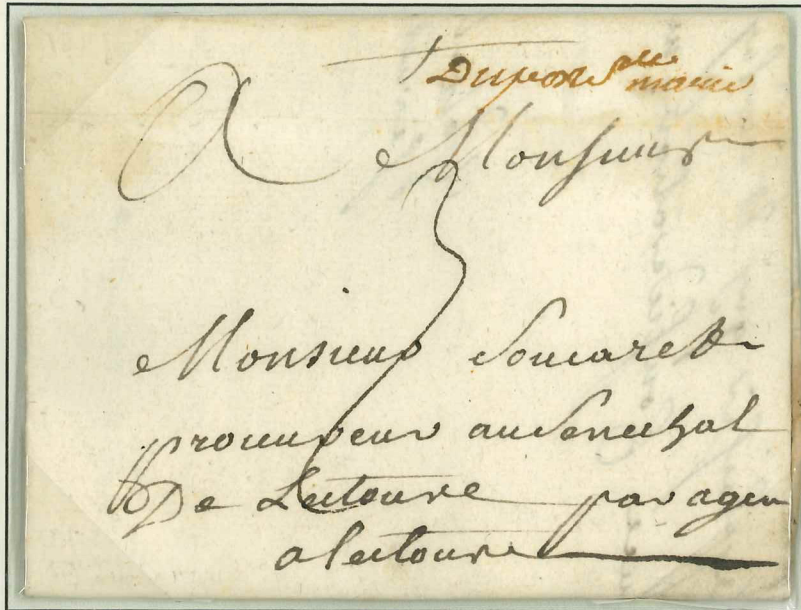 Duport Ste
marie
A Monsieur
3
Monsieur Soucaret
procureur au Senechal
De Lectoure par agen
a lectoure